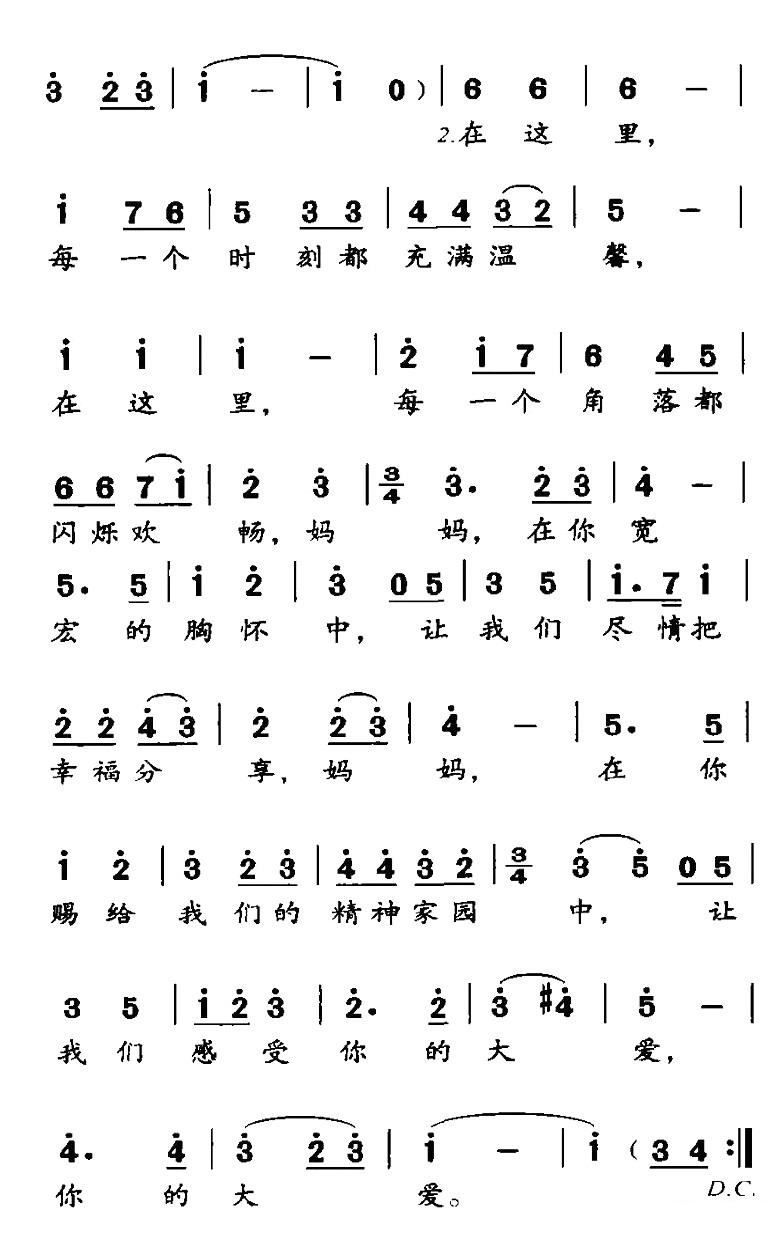 3̇ 2̇ 3̇ | 1̇ － | 1̇ 0 ) | 6 6 | 6 － |
2.在 这 里,
1̇ 7 6 | 5 3 3 | 4 4 3 2 | 5 － |
每 一 个 时 刻 都 充 满 温 馨,
1̇ 1̇ | 1̇ － | 2̇ 1̇ 7 | 6 4 5 |
在 这 里, 每 一 个 角 落 都
6 6 7 1̇ | 2̇ 3̇ | 3/4 3̇. 2̇ 3̇ | 4̇ － |
闪 烁 欢 畅, 妈 妈, 在 你 宽
5. 5 | 1̇ 2̇ | 3̇ 0 5 | 3 5 | 1̇. 7 1̇ |
宏 的 胸 怀 中, 让 我 们 尽 情 把
2̇ 2̇ 4̇ 3̇ | 2̇ 2̇ 3̇ | 4̇ － | 5. 5̇ |
幸 福 分 享, 妈 妈, 在 你
1̇ 2̇ | 3̇ 2̇ 3̇ | 4̇ 4̇ 3̇ 2̇ | 3/4 3̇ 5̇ 0 5 |
赐 给 我 们 的 精 神 家 园 中, 让
3 5 | 1̇ 2̇ 3̇ | 2̇. 2̇ | 3̇ #4̇ | 5̇ － |
我 们 感 受 你 的 大 爱,
4̇. 4̇ | 3̇ 2̇ 3̇ | 1̇ － | 1̇ ( 3 4 :‖
你 的 大 爱。 D.C.